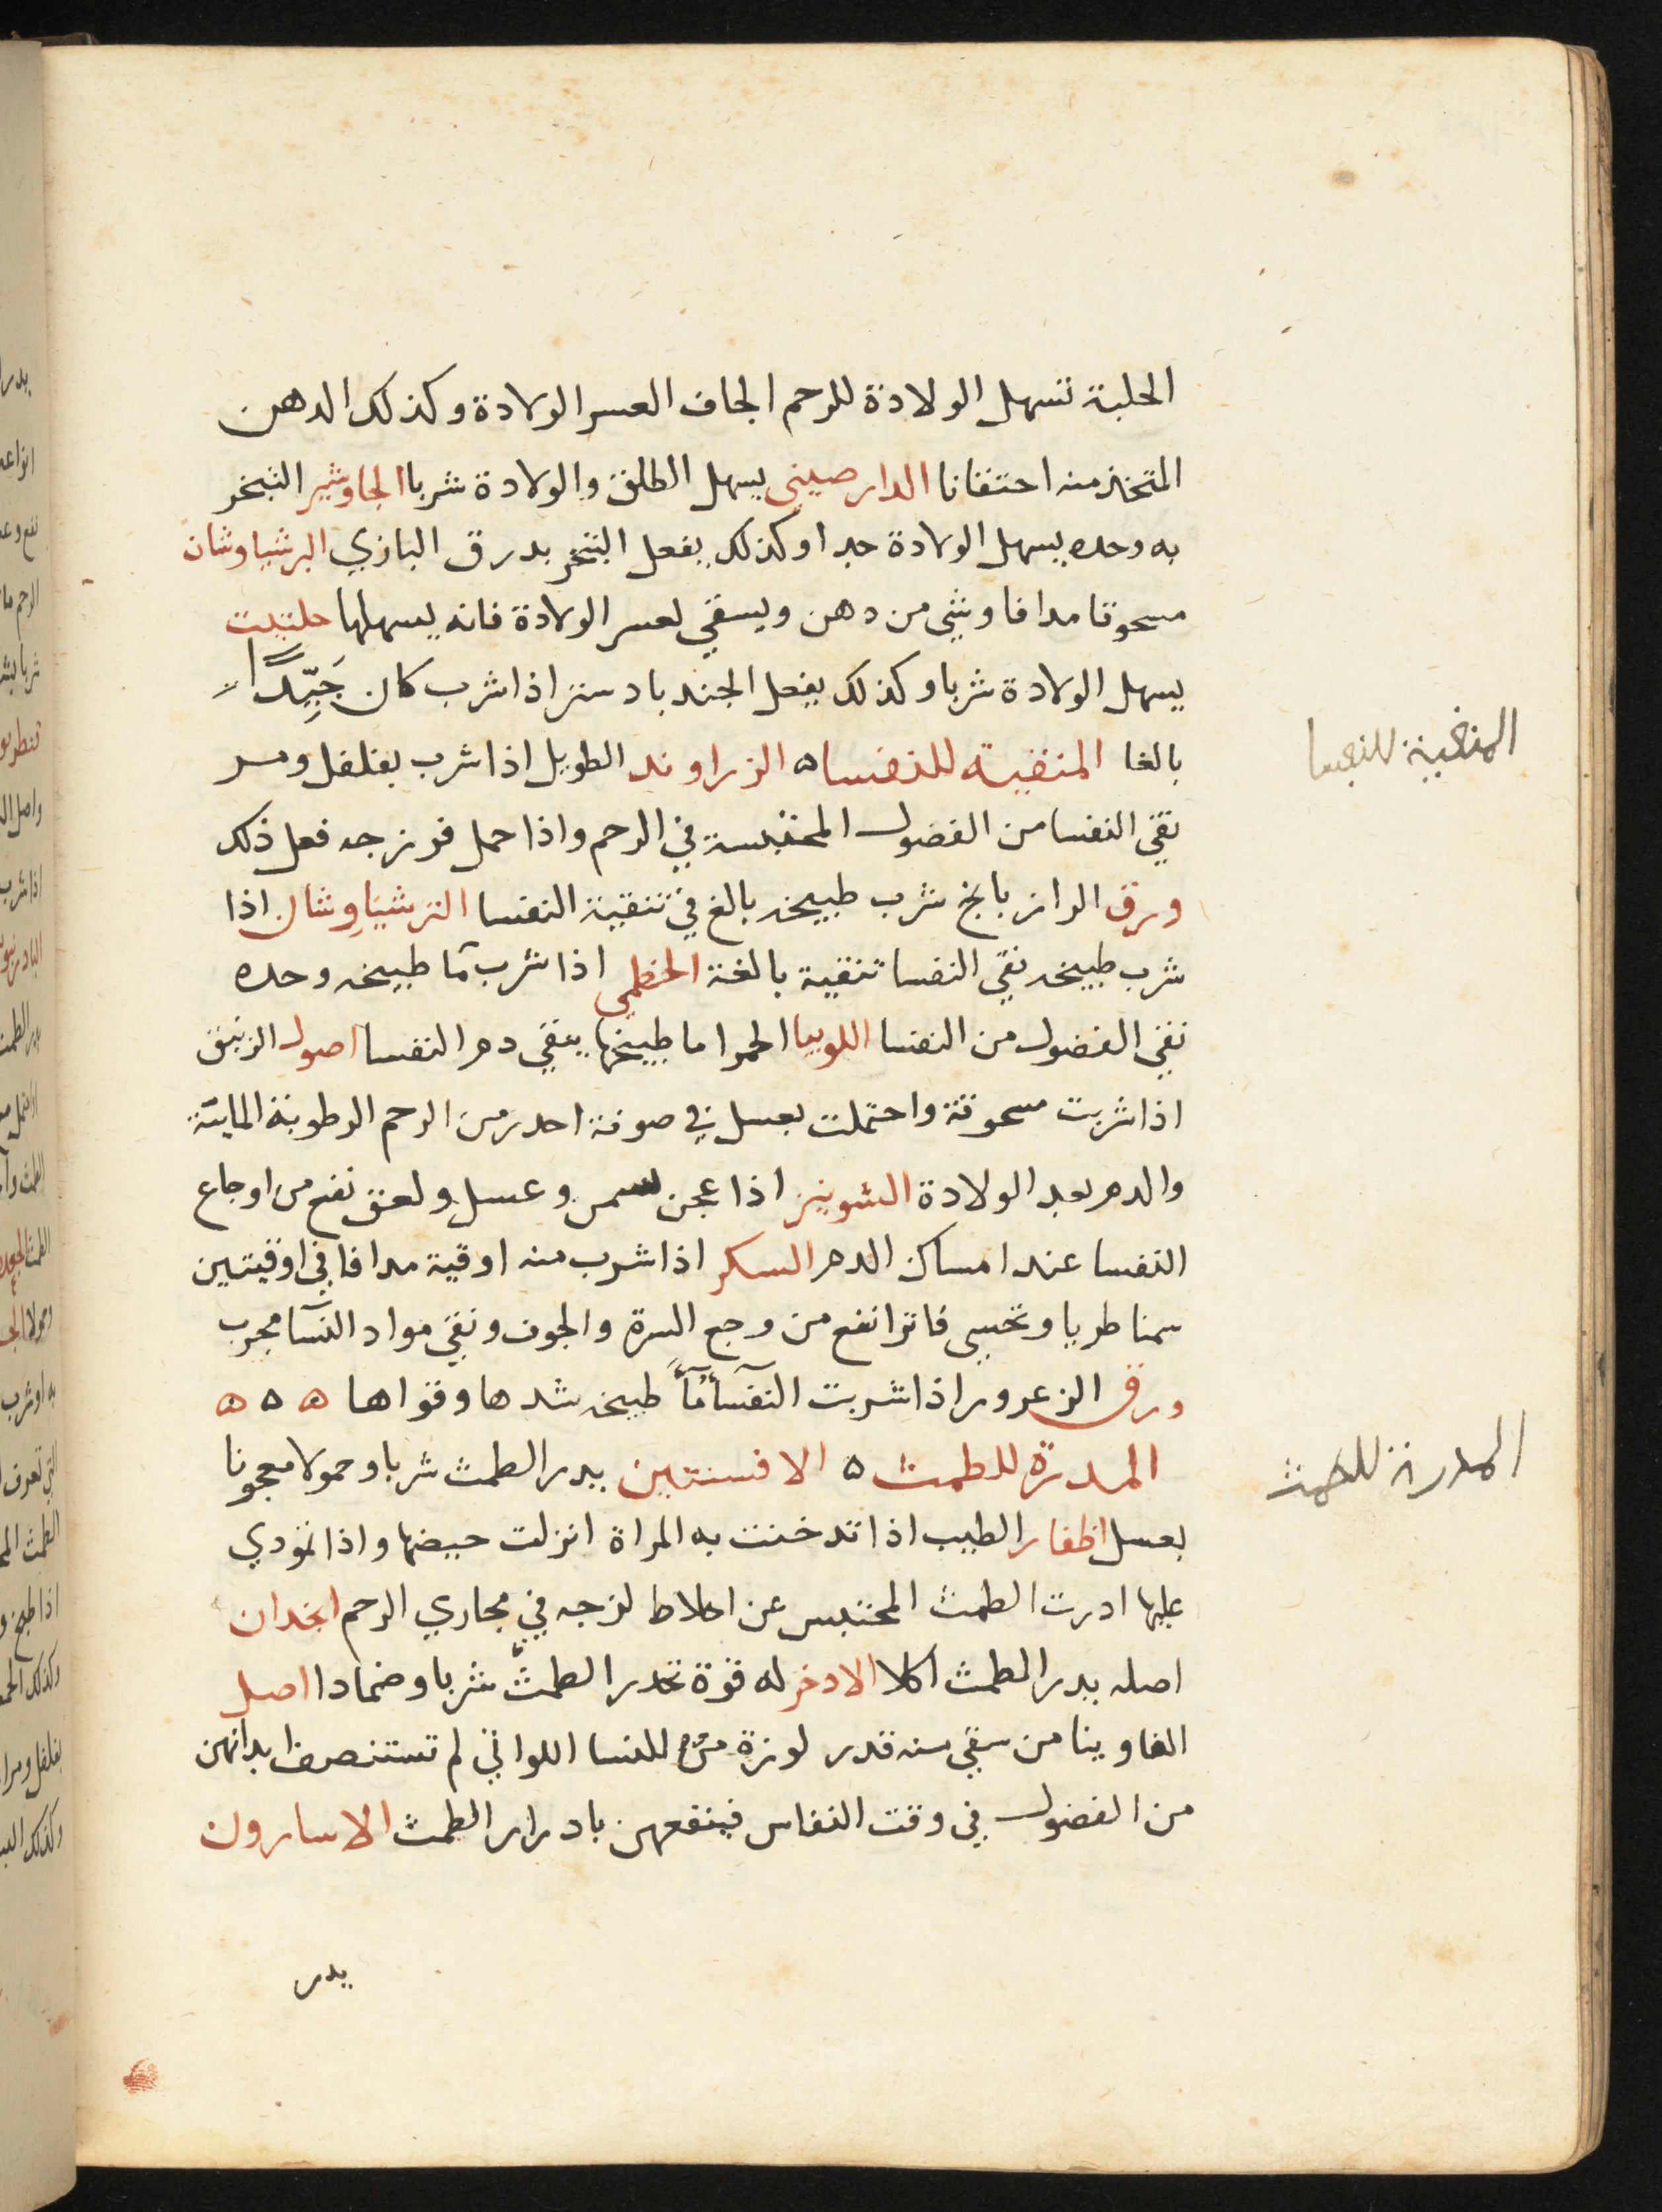 الحلبة تسهل الولادة للرحم الجاف العسر الولادة وكذلك الدهن
المتخذ منه احتقانا الدارصيني يسهل الطلق والولادة شربا الجاوشير التبخر
به وحده يسهل الولادة جدا وكذلك يفعل التبخر بدرق البازي البرشياوشان
مسحوقا مدافا وشي من دهن ويسقي لعسر الولادة فانه يسهلها حلتيت
يسهل الولادة شربا وكذلك يفعل الجندبادستر اذا شرب كان جَيِّداً
بالغا المنقية للنفسا ه الزراوند الطويل اذا شرب بفلفل ومر
نقي النفسا من الفضول المحتبسة في الرحم واذا حمل فرزجه فعل ذلك
ورق الرازيانج شرب طبيخه بالغ في تنقية النفسا البرشياوشان اذا
شرب طبيخه نقي النفسا تنقية بالغة الخطمي اذا شرب مآ طبيخه وحده
نقي الفضول من النفسا اللوبيا الحمرا ما طبيخها ينقي دم النفسا اصول الزنبق
اذا شربت مسحوقة واحتملت بعسل في صوفة احدر من الرحم الرطوبة المايئة
والدم بعد الولادة الشونيز اذا عجن بسمن وعسل ولعق نفع من اوجاع
النفسا عند امساك الدم السكر اذا شرب منه اوقية مدافا في اوقيتين
سمنا طريا وتحسي فاترا نفع من وجع السرة والجوف ونقي مواد النسآ مجرب
ورق الزعرور اذا شربت النفسآ مآءً طبيخه شدها وقواها ه ه ه
المدرة للطمث ه الافسنتين يدر الطمث شربا وحمولا معجونا
بعسل اظفار الطيب اذا تدخنت به المراة انزلت حيضها واذا تمودي
عليها ادرت الطمث المحتبس عن اخلاط لزجه في مجاري الرحم انجدان
اصله يدر الطمث اكلا الادخر له قوة تحدر الطمث شربا وضمادا اصل
الفاوينا من سقي منه قدر لوزة للنسا اللواتي لم تستنصف ابدانهن
من الفضول في وقت النفاس فينفعهن بادرار الطمث الاسارون
يدر
المنقية للنفسا
المدرة للطمث